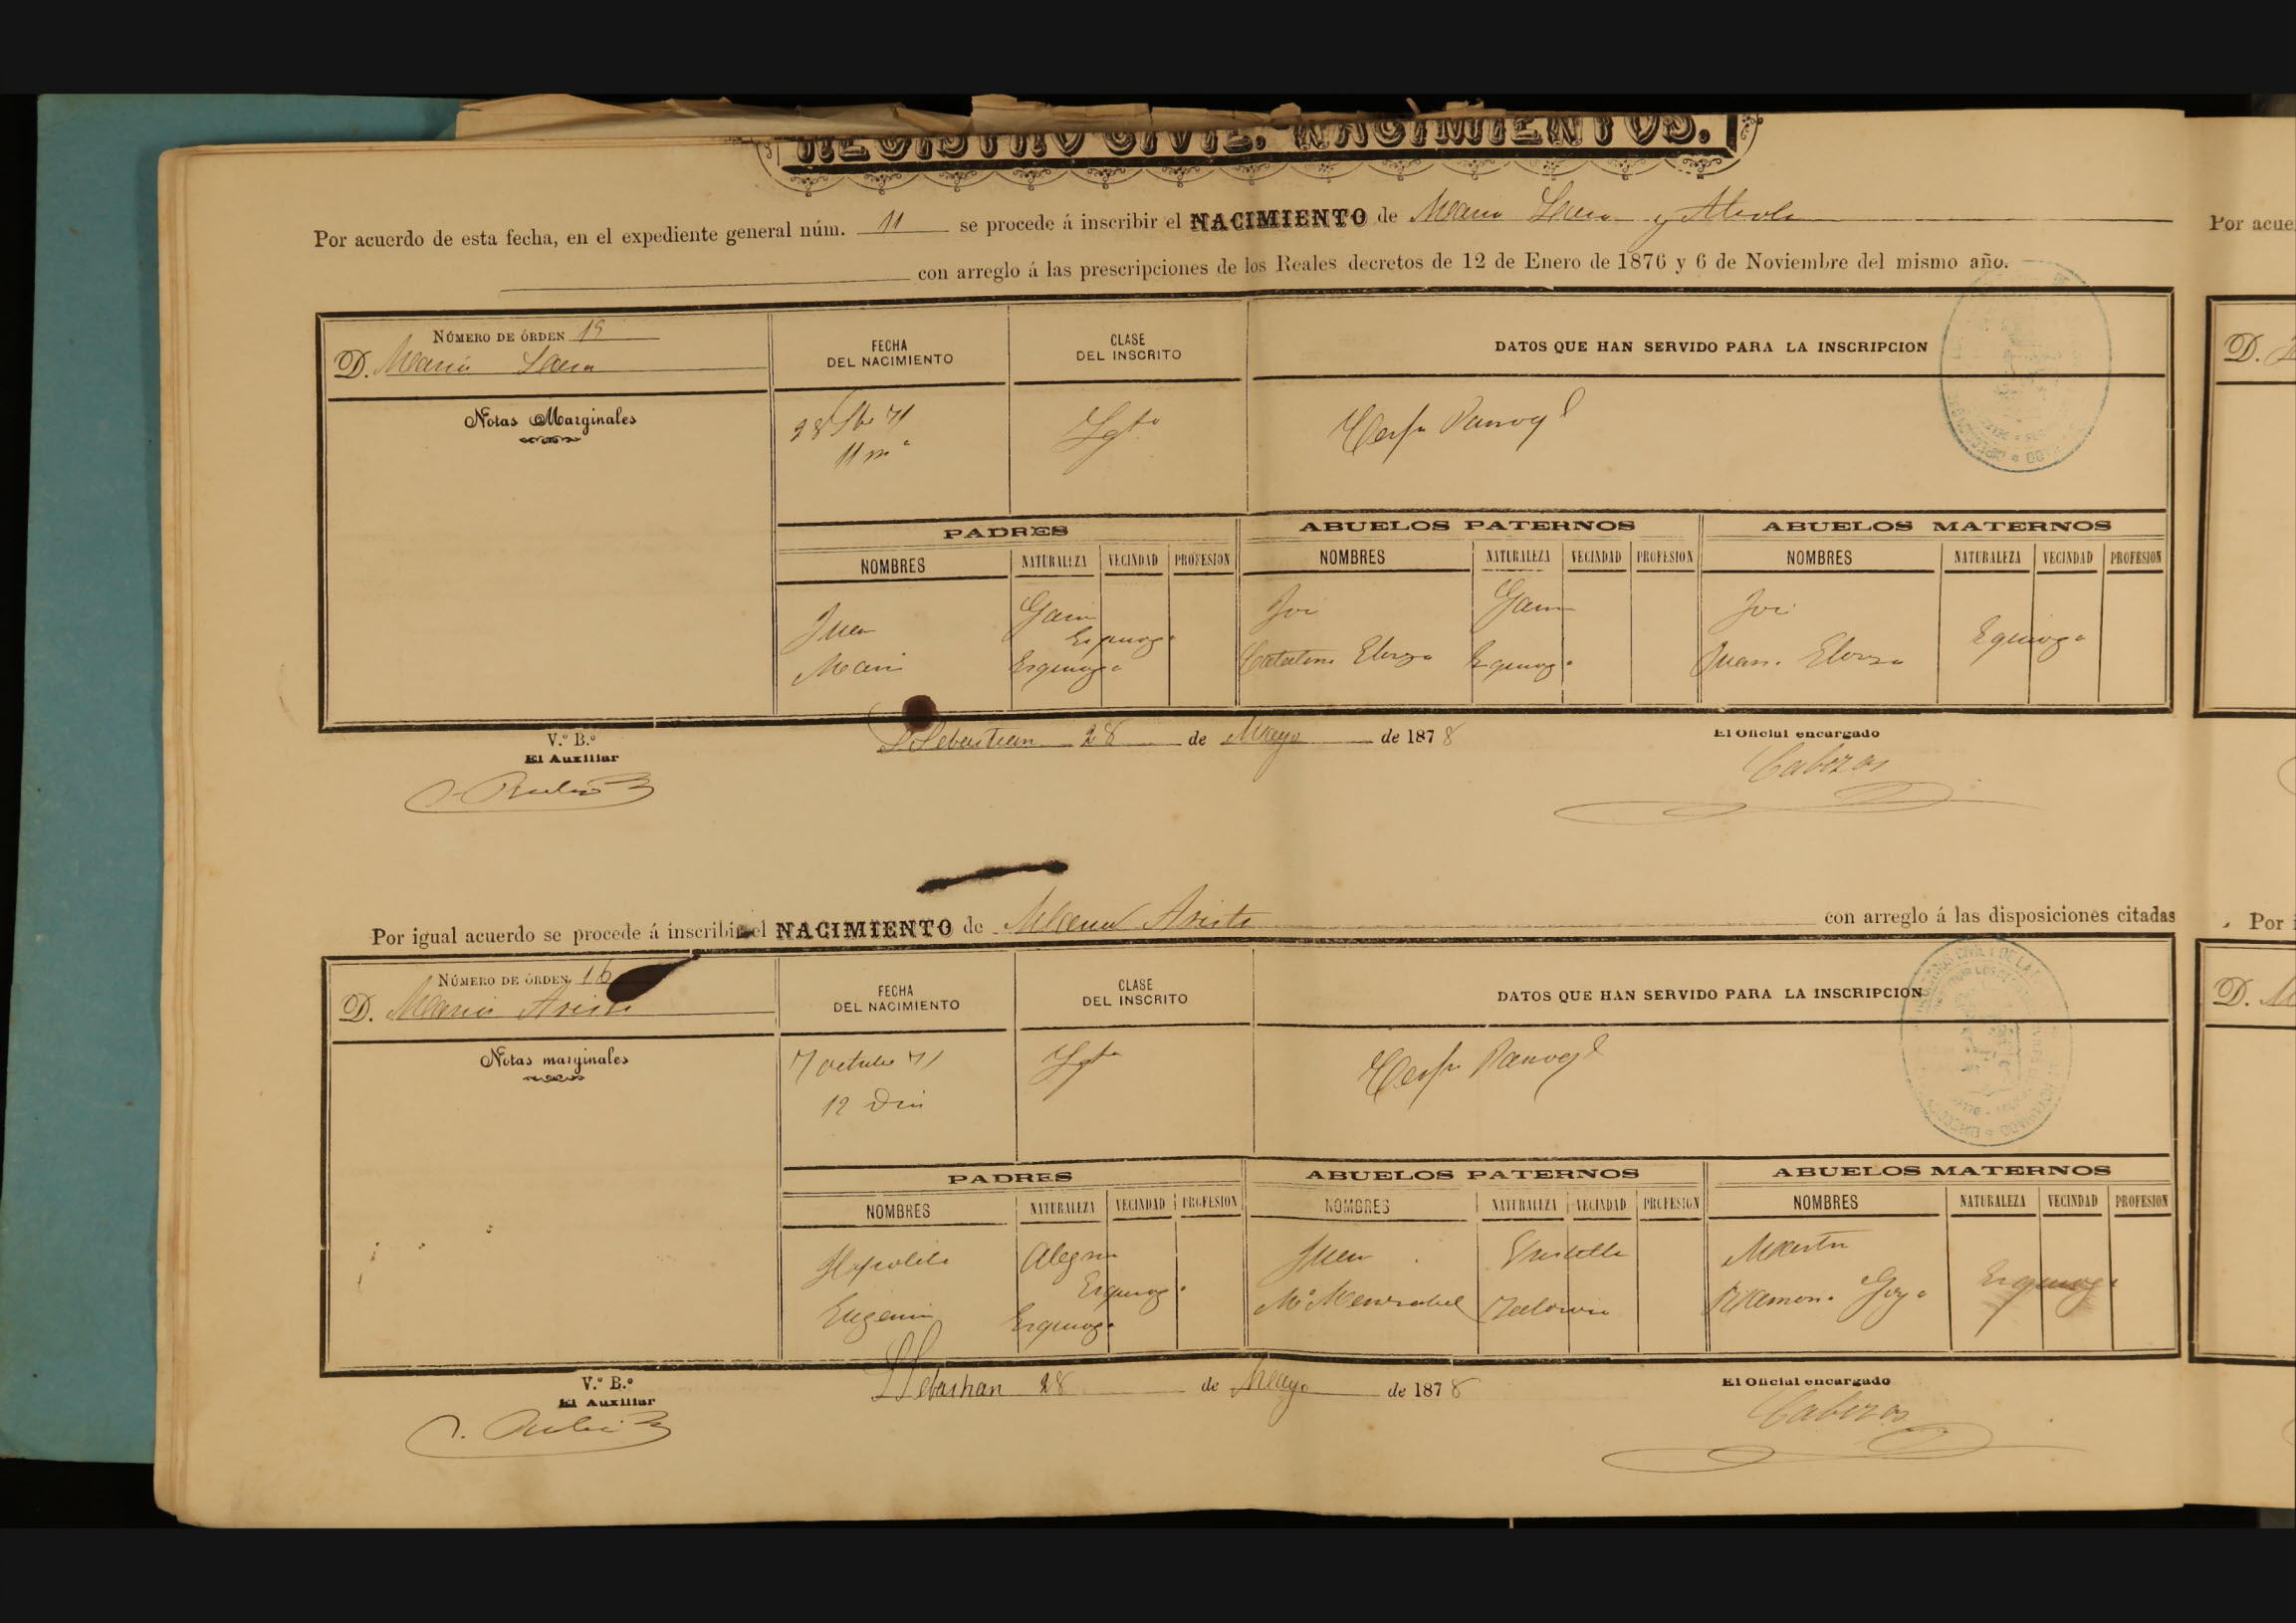 REGISTRO CIVIL. NACIMIENTOS.
Por acuerdo de esta fecha, en el expediente general núm. 11 se procede á inscribir el NACIMIENTO de Maria y
con arreglo á las prescripciones de los Reales decretos de 12 de Enero de 1876 y 6 de Noviembre del mismo año.
NÚMERO DE ÓRDEN 15
D. Maria
FECHA DEL NACIMIENTO
CLASE DEL INSCRITO
DATOS QUE HAN SERVIDO PARA LA INSCRIPCION
Notas Marginales
28 71
11 mª
PADRES ABUELOS PATERNOS ABUELOS MATERNOS
NOMBRES NATURALEZA VECINDAD PROFESION NOMBRES NATURALEZA VECINDAD PROFESION NOMBRES NATURALEZA VECINDAD PROFESION
Juan Gavi José Gavi José
Esquioga Esquioga
Maria Esquioga Catalina Elorza Esquioga Juana Elorza
S Sebastian 28 de Mayo de 1878
V.º B.º
El Auxiliar
Rubio
El Oficial encargado
Cabezas
Por igual acuerdo se procede á inscribir el NACIMIENTO de Arista con arreglo á las disposiciones citadas
NÚMERO DE ÓRDEN 16
D. Maria Arista
FECHA DEL NACIMIENTO
CLASE DEL INSCRITO
DATOS QUE HAN SERVIDO PARA LA INSCRIPCION
Notas marginales
7 octubre 71
12 Dia
PADRES ABUELOS PATERNOS ABUELOS MATERNOS
NOMBRES NATURALEZA VECINDAD PROFESION NOMBRES NATURALEZA VECINDAD PROFESION NOMBRES NATURALEZA VECINDAD PROFESION
Hipolito Alegria Juan Martin
Esquioga Esquioga
Eugenia Esquioga Mª Mendizabal Zaldivia Ramona Goya
S Sebastian 28 de Mayo de 1878
V.º B.º
El Auxiliar
Rubio
El Oficial encargado
Cabezas
Por acue
D.
Por i
D. M